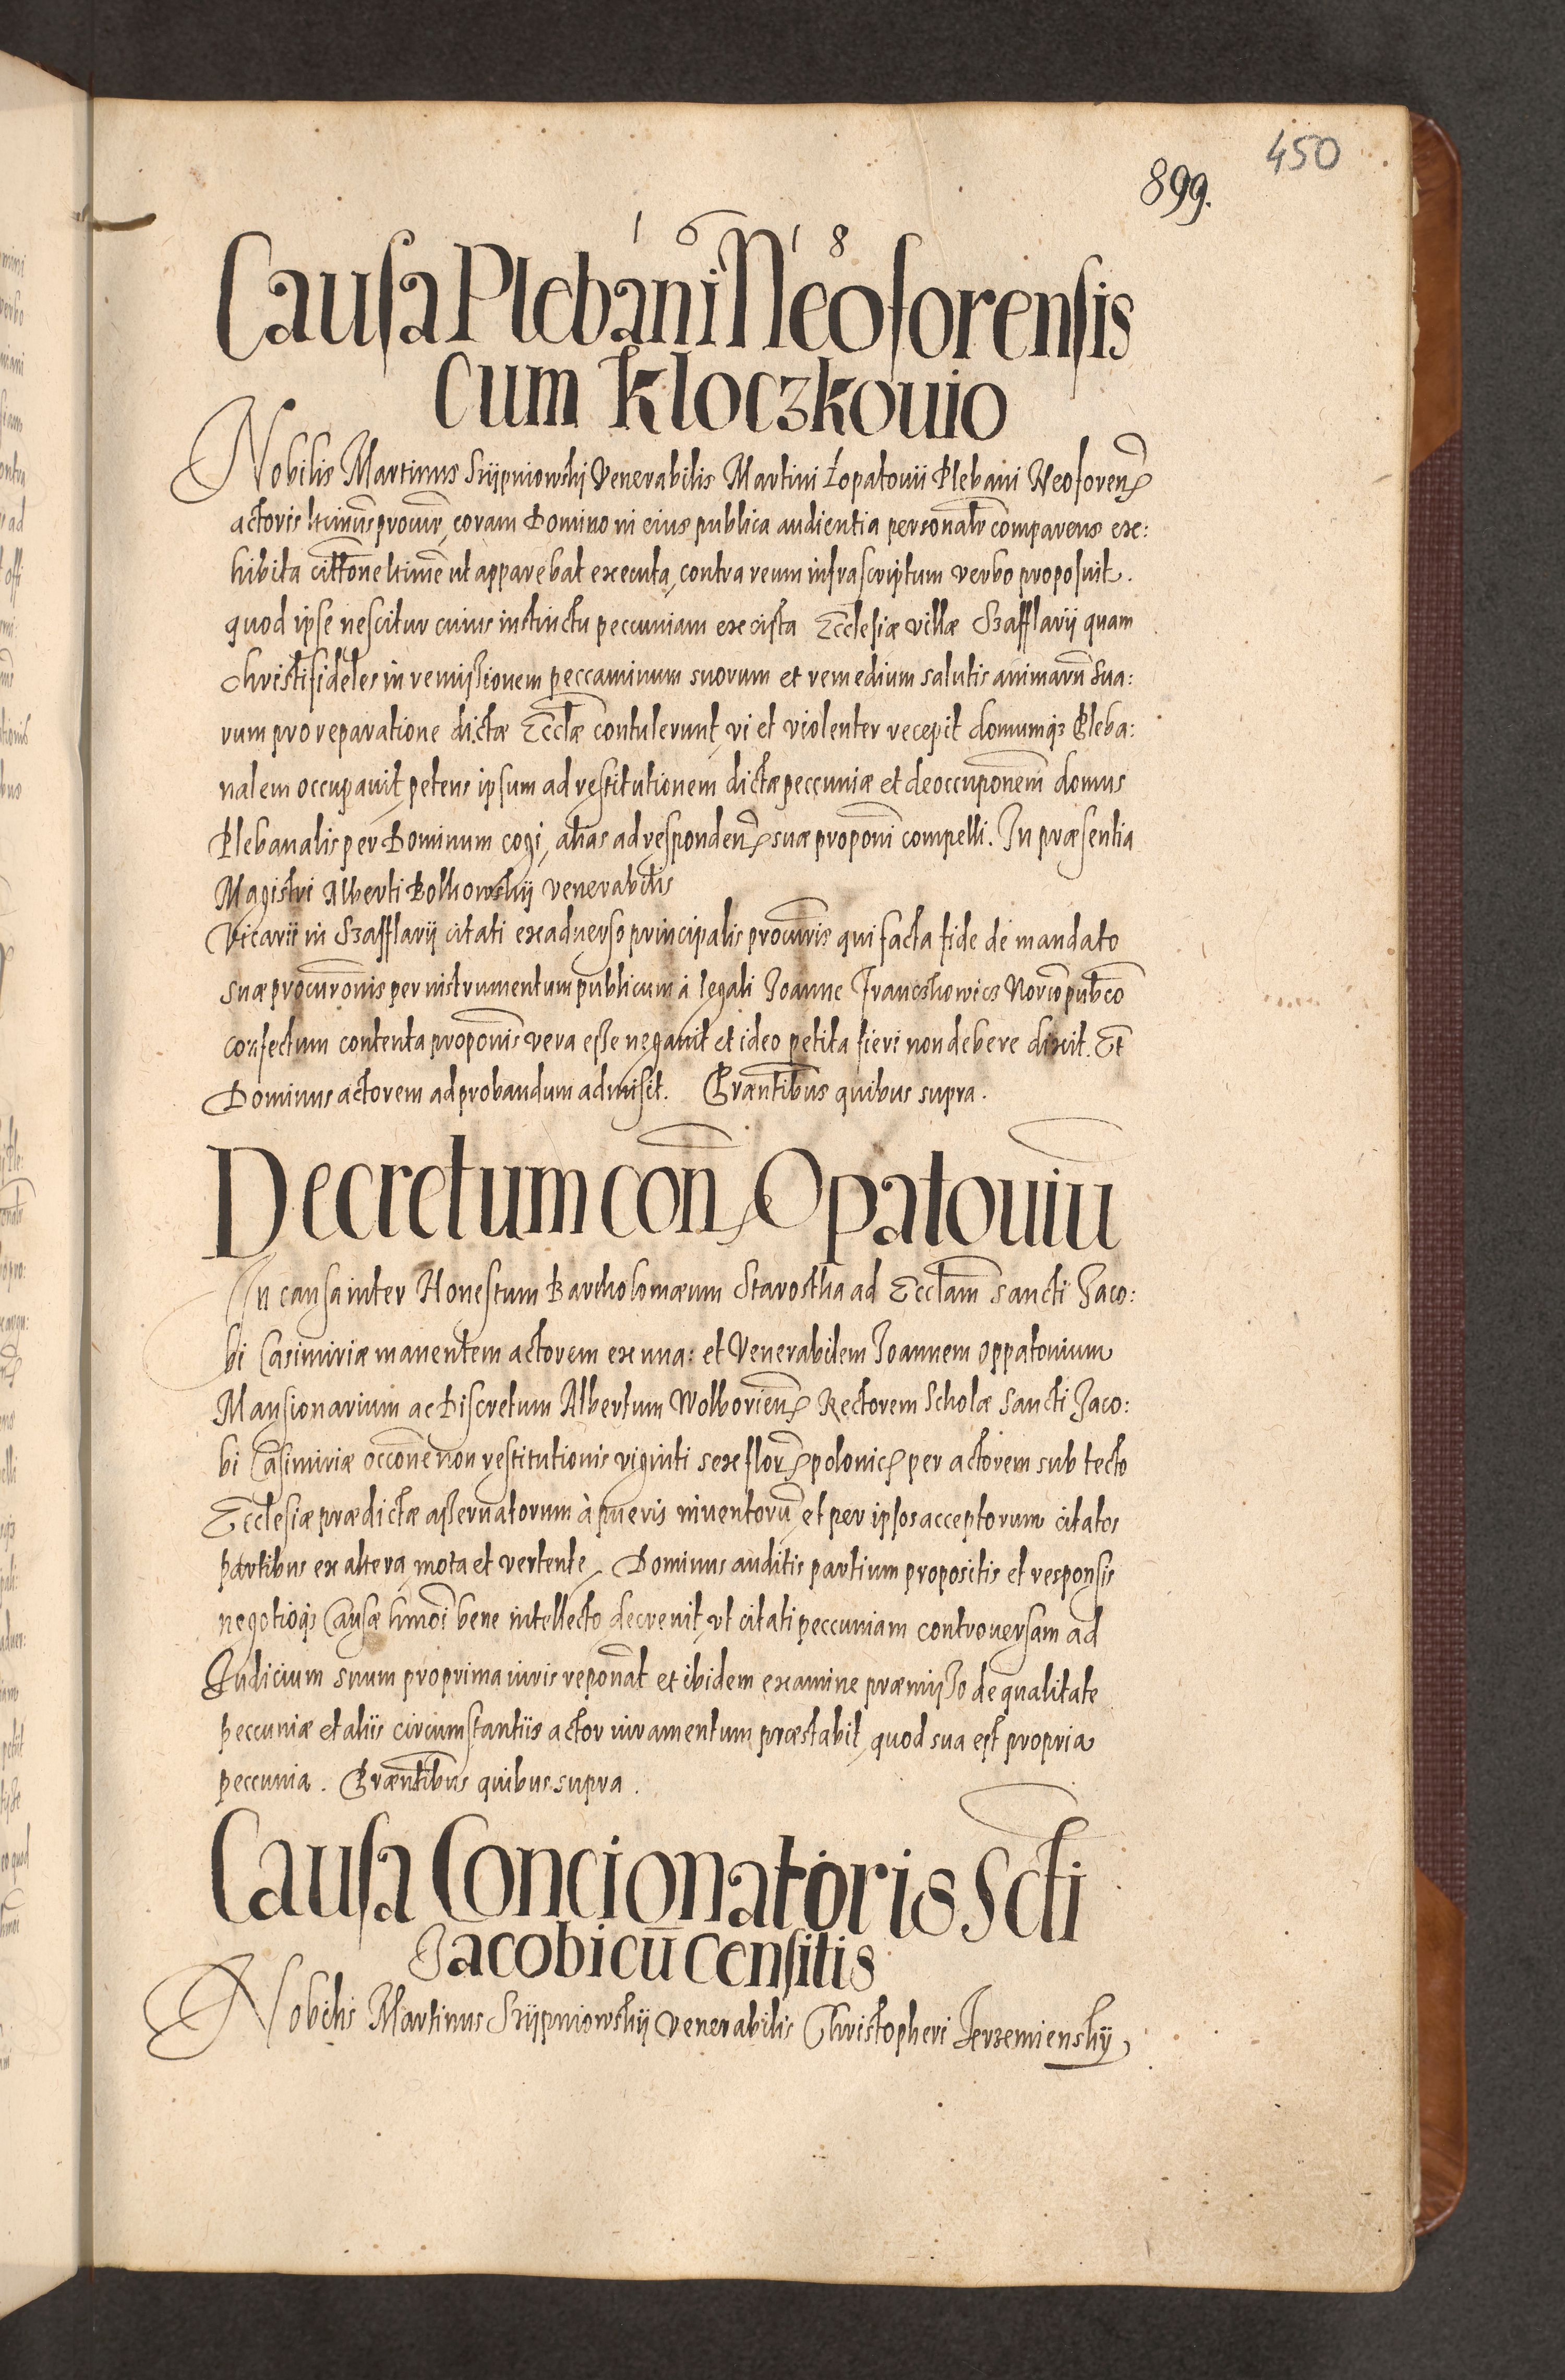 450
899.
1 6 1 8
Causa Plebani Neoforensis
Cum Kloczkouio
Nobilis Martinus Szijpniowskij Venerabilis Martini Łopatouii Plebani Neoforen̄
actoris ltimus procur̄, coram Domino in eius publica audientia personalr̄ comparens ex:
hibita citt̄one ltime ut apparebat executa, contra reum infrascriptum verbo proposuit.
quod ipse nescitur cuius instinctu peccuniam ex cista Ecclesiæ villæ Szafflarij quam
Christifideles in remissionem peccaminum suorum et remedium salutis animarū sua:
rum pro reparatione dictæ Eccl̄æ contulerunt, vi et violenter recepit domumq₃ Pleba:
nalem occupauit, petens ipsum ad restitutionem dictæ peccuniæ et deoccupōnem domus
Plebanalis per Dominum cogi, al̄ias ad responden̄ suæ propōni compelli. In præsentia
Magistri Alberti Bolkowskij venerabilis
Vicarii in Szafflarij citati ex aduerso principalis procur̄is qui facta fide de mandato
suæ procurōnis per instrumentum publicum à legali Joanne Franczkowicz Nor̄io pub̄co
confectum contenta propōnis vera esse negauit et ideo petita fieri non debere dixit. Et
Dominus actorem ad probandum admisit. Præntībus quibus supra.
Decretum con̄ Opatouiū
In causa inter Honestum Bartholomæum Starostha ad Eccl̄am Sancti Jaco:
bi Casimiriæ manentem actorem ex una: et Venerabilem Joannem Oppatouium
Mansionarium ac Discretum Albertum Wolborien̄ Rectorem Scholæ Sancti Jaco:
bi Casimiriæ occ̄one non restitutionis viginti sex flor̄ polonic̄ per actorem sub tecto
Ecclesiæ prædictæ asseruatorum à pueris inuentorū, et per ipsos acceptorum citatos
partibus ex altera, mota et vertente, Dominus auditis partium propositis et responsis
negotioq₃ Causæ hmōi bene intellecto, decreuit, vt citati peccuniam controuersam ad
Judicium suum pro prima iuris reponāt et ibidem examine præmisso de qualitate
peccuniæ et aliis circumstantiis actor iuramentum præstabit, quod sua est propria
peccunia. Præntībus quibus supra.
Causa Concionatoris Scti
Jacobi cū Censitis
Nobilis Martinus Szijpniowskij venerabilis Christopheri Jerzemienskij